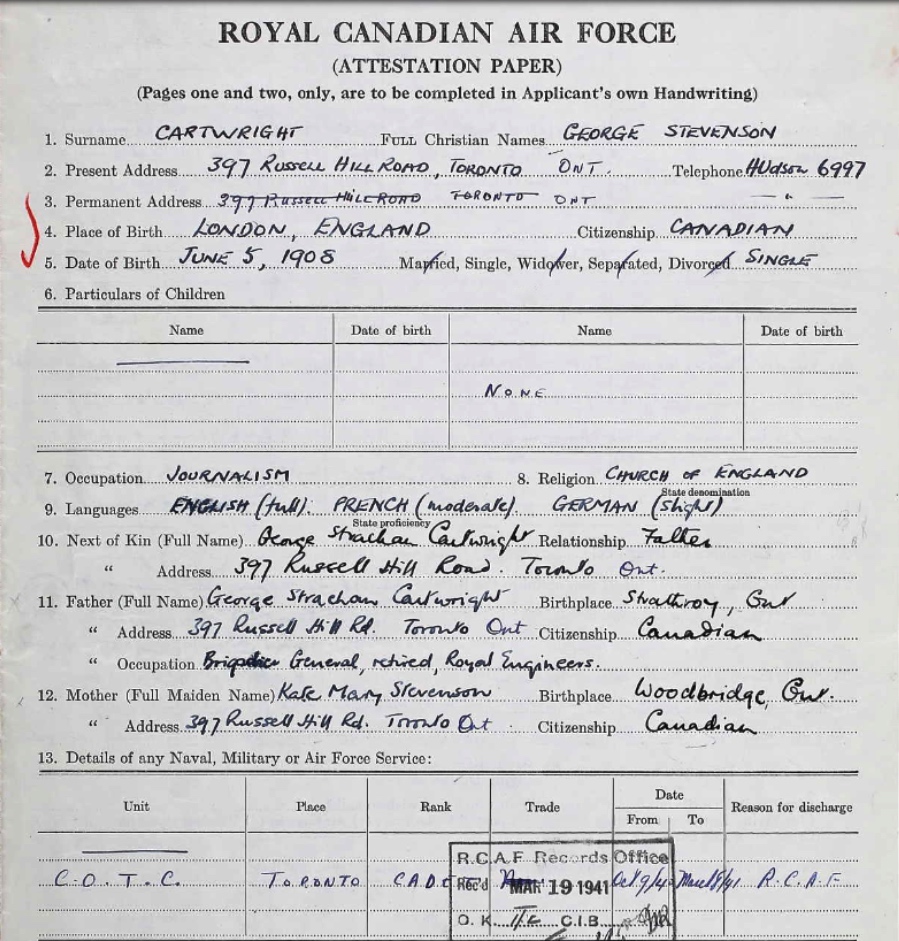 ROYAL CANADIAN AIR FORCE
(ATTESTATION PAPER)
(Pages one and two, only, are to be completed in Applicant's own Handwriting)
1. Surname CARTWRIGHT FULL Christian Names GEORGE STEVENSON
2. Present Address 397 RUSSELL HILL ROAD, TORONTO ONT. Telephone HUdson 6997
3. Permanent Address 397 RUSSELL HILL ROAD TORONTO ONT — " —
4. Place of Birth LONDON, ENGLAND Citizenship CANADIAN
5. Date of Birth JUNE 5, 1908 Married, Single, Widower, Separated, Divorced SINGLE
6. Particulars of Children
Name Date of birth Name Date of birth
NONE
7. Occupation JOURNALISM 8. Religion CHURCH OF ENGLAND
State denomination
9. Languages ENGLISH (full). FRENCH (moderate). GERMAN (slight)
State proficiency
10. Next of Kin (Full Name) George Strachan Cartwright Relationship Father
" Address 397 Russell Hill Road. Toronto Ont.
11. Father (Full Name) George Strachan Cartwright Birthplace Strathroy, Ont
" Address 397 Russell Hill Rd. Toronto Ont Citizenship Canadian
" Occupation Brigadier General, retired, Royal Engineers.
12. Mother (Full Maiden Name) Kate Mary Stevenson Birthplace Woodbridge, Ont.
" Address 397 Russell Hill Rd. Toronto Ont Citizenship Canadian
13. Details of any Naval, Military or Air Force Service:
Unit Place Rank Trade Date Reason for discharge
From To
R.C.A.F Records Office
C.O.T.C. TORONTO CADET Rec'd MAR 19 1941 Oct 9/40 R.C.A.F
O.K. C.I.B.